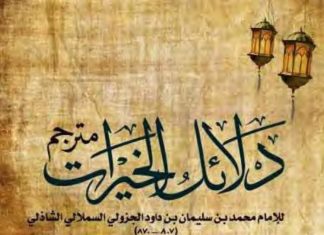 دلائل الخيرات مترجم
للإمام محمد بن سليمان بن داود الجزولي السملالي الشاذلي
(٨٠٧—٨٧٠)